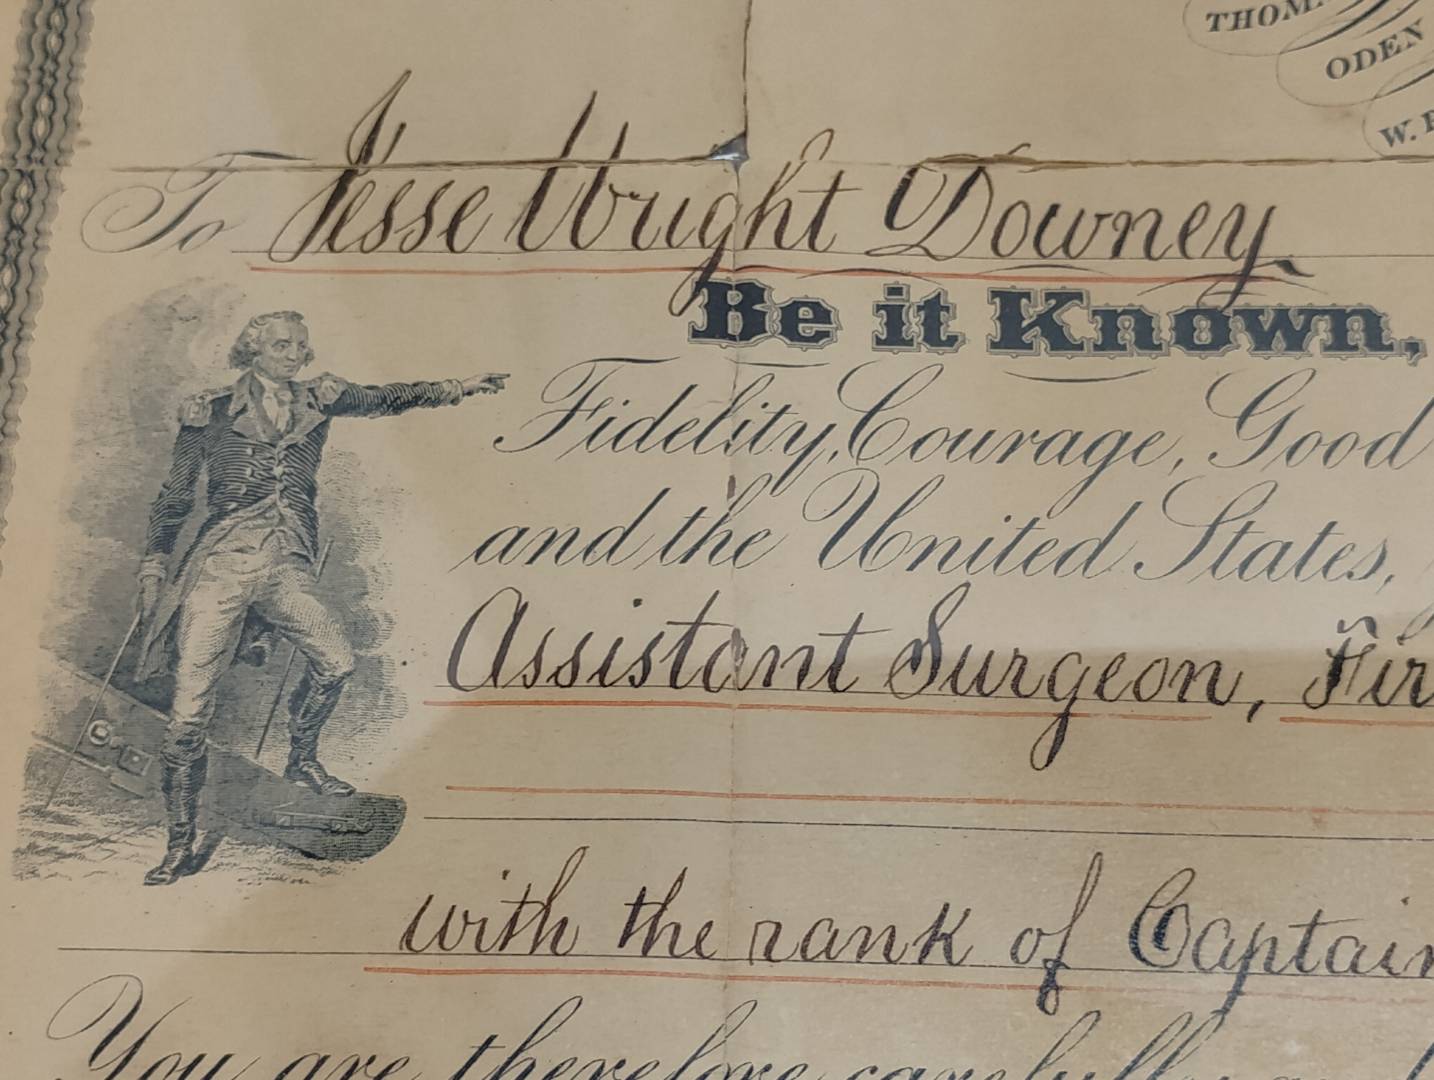 ODEN
To Jesse Wright Downey
Be it Known,
Fidelity, Courage, Good
and the United States,
Assistant Surgeon, Fir
with the rank of Captain
You are therefore carefully